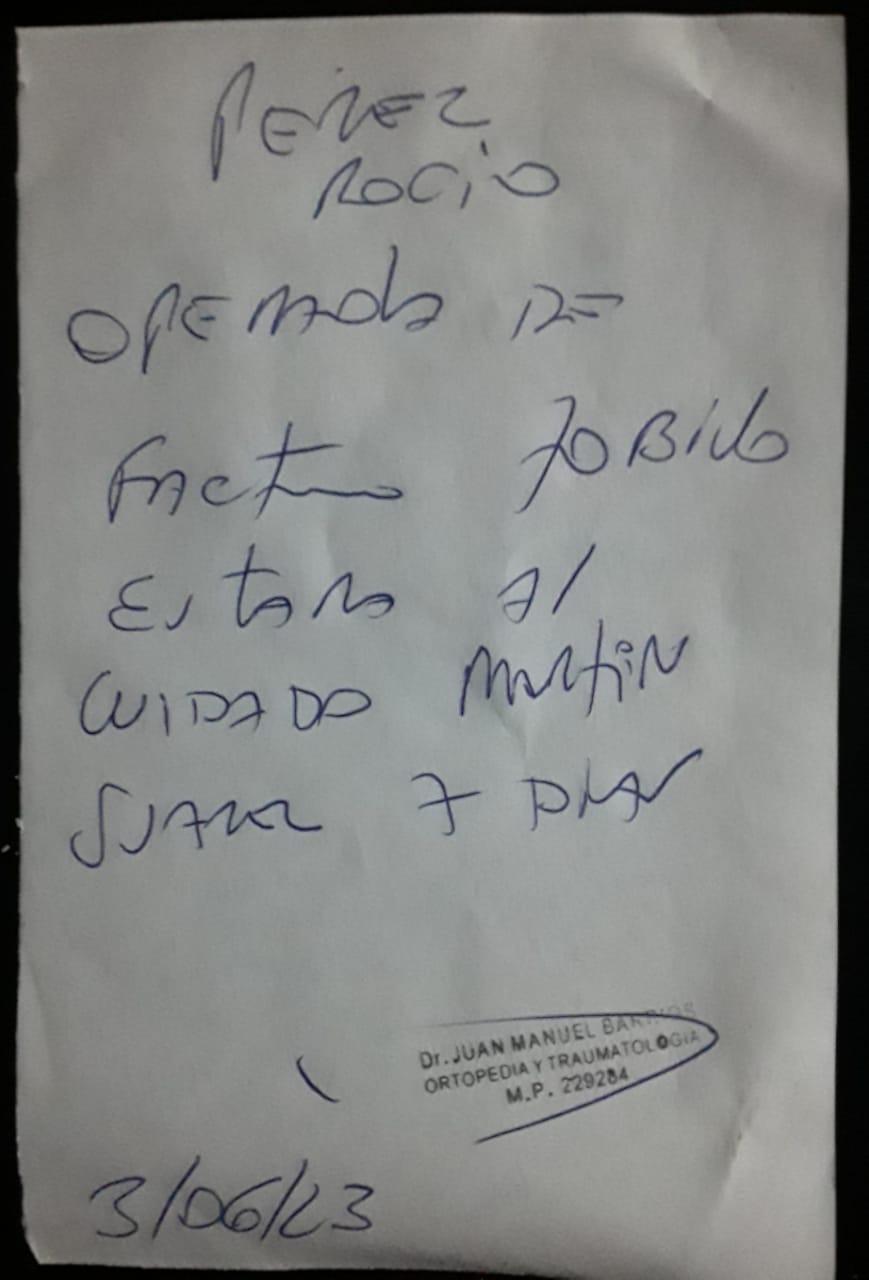 PEREZ
ROCIO
OPERADA DE
Fractura TOBILLO
EstaRa a/
CUIDADO Martin
SUAREZ 7 DIAS
Dr. JUAN MANUEL BARRIOS
ORTOPEDIA Y TRAUMATOLOGIA
M.P. 229284
3/06/23